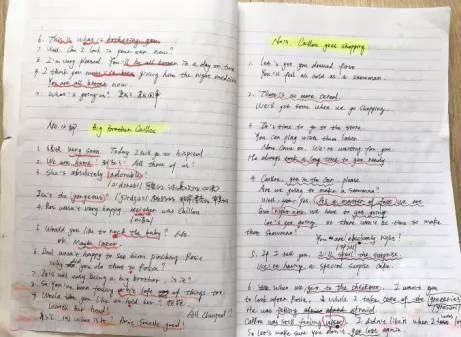 6. This is what is bothering you
7. Well. Can I look in your ear now?
8. I'm very pleased. You'll be all better in a day or two
9. I think you giving him the right medicine
You are all better now.
7. What's going on?
Big brother Caillou
very soon. Today I will go to hospital
2. We are home! All three of us!
3. She's absolutely adorable!
Isn't she gorgeous
4. Rosie wasn't very happy neither was Caillou
5. Would you like to rock the baby? No.
ok. Maybe later.
6. Dad wasn't happy to see him pinching Rosie
Why did you do there to Rosie?
7. It's not easy being a big brother, is it?
8. So you've been feeling a little left out of things too.
9. Would you like to hold her?
Support her head!
All changed?
Rosie smells good!
No13. Caillou goes shopping
1. Let's get you dressed first
You'll feel as cold as a snowman.
2. There's no more cereal.
We'll get some when we go shopping.
3. It's time to go to the store
You can play with them later
Now come on. We're waiting for you
He always took a long time to get ready
4. Caillou, get in the car, please
Are we going to make a snowman?
Well, yes. As a matter of fact we are
But right now we have to get going.
Let's get going or there won't be time to make
that snowman!
You are absolutely right!
5. If I tell you, I'll spoil the surprise
We're having a special surprise cake.
6. When we get to the checkout. I want you
to look after Rosie, while I take care of the groceries
He was feeling afraid
Caillou was still feeling upset. I didn't like it when I was lost
So let's make sure you don't get lost again